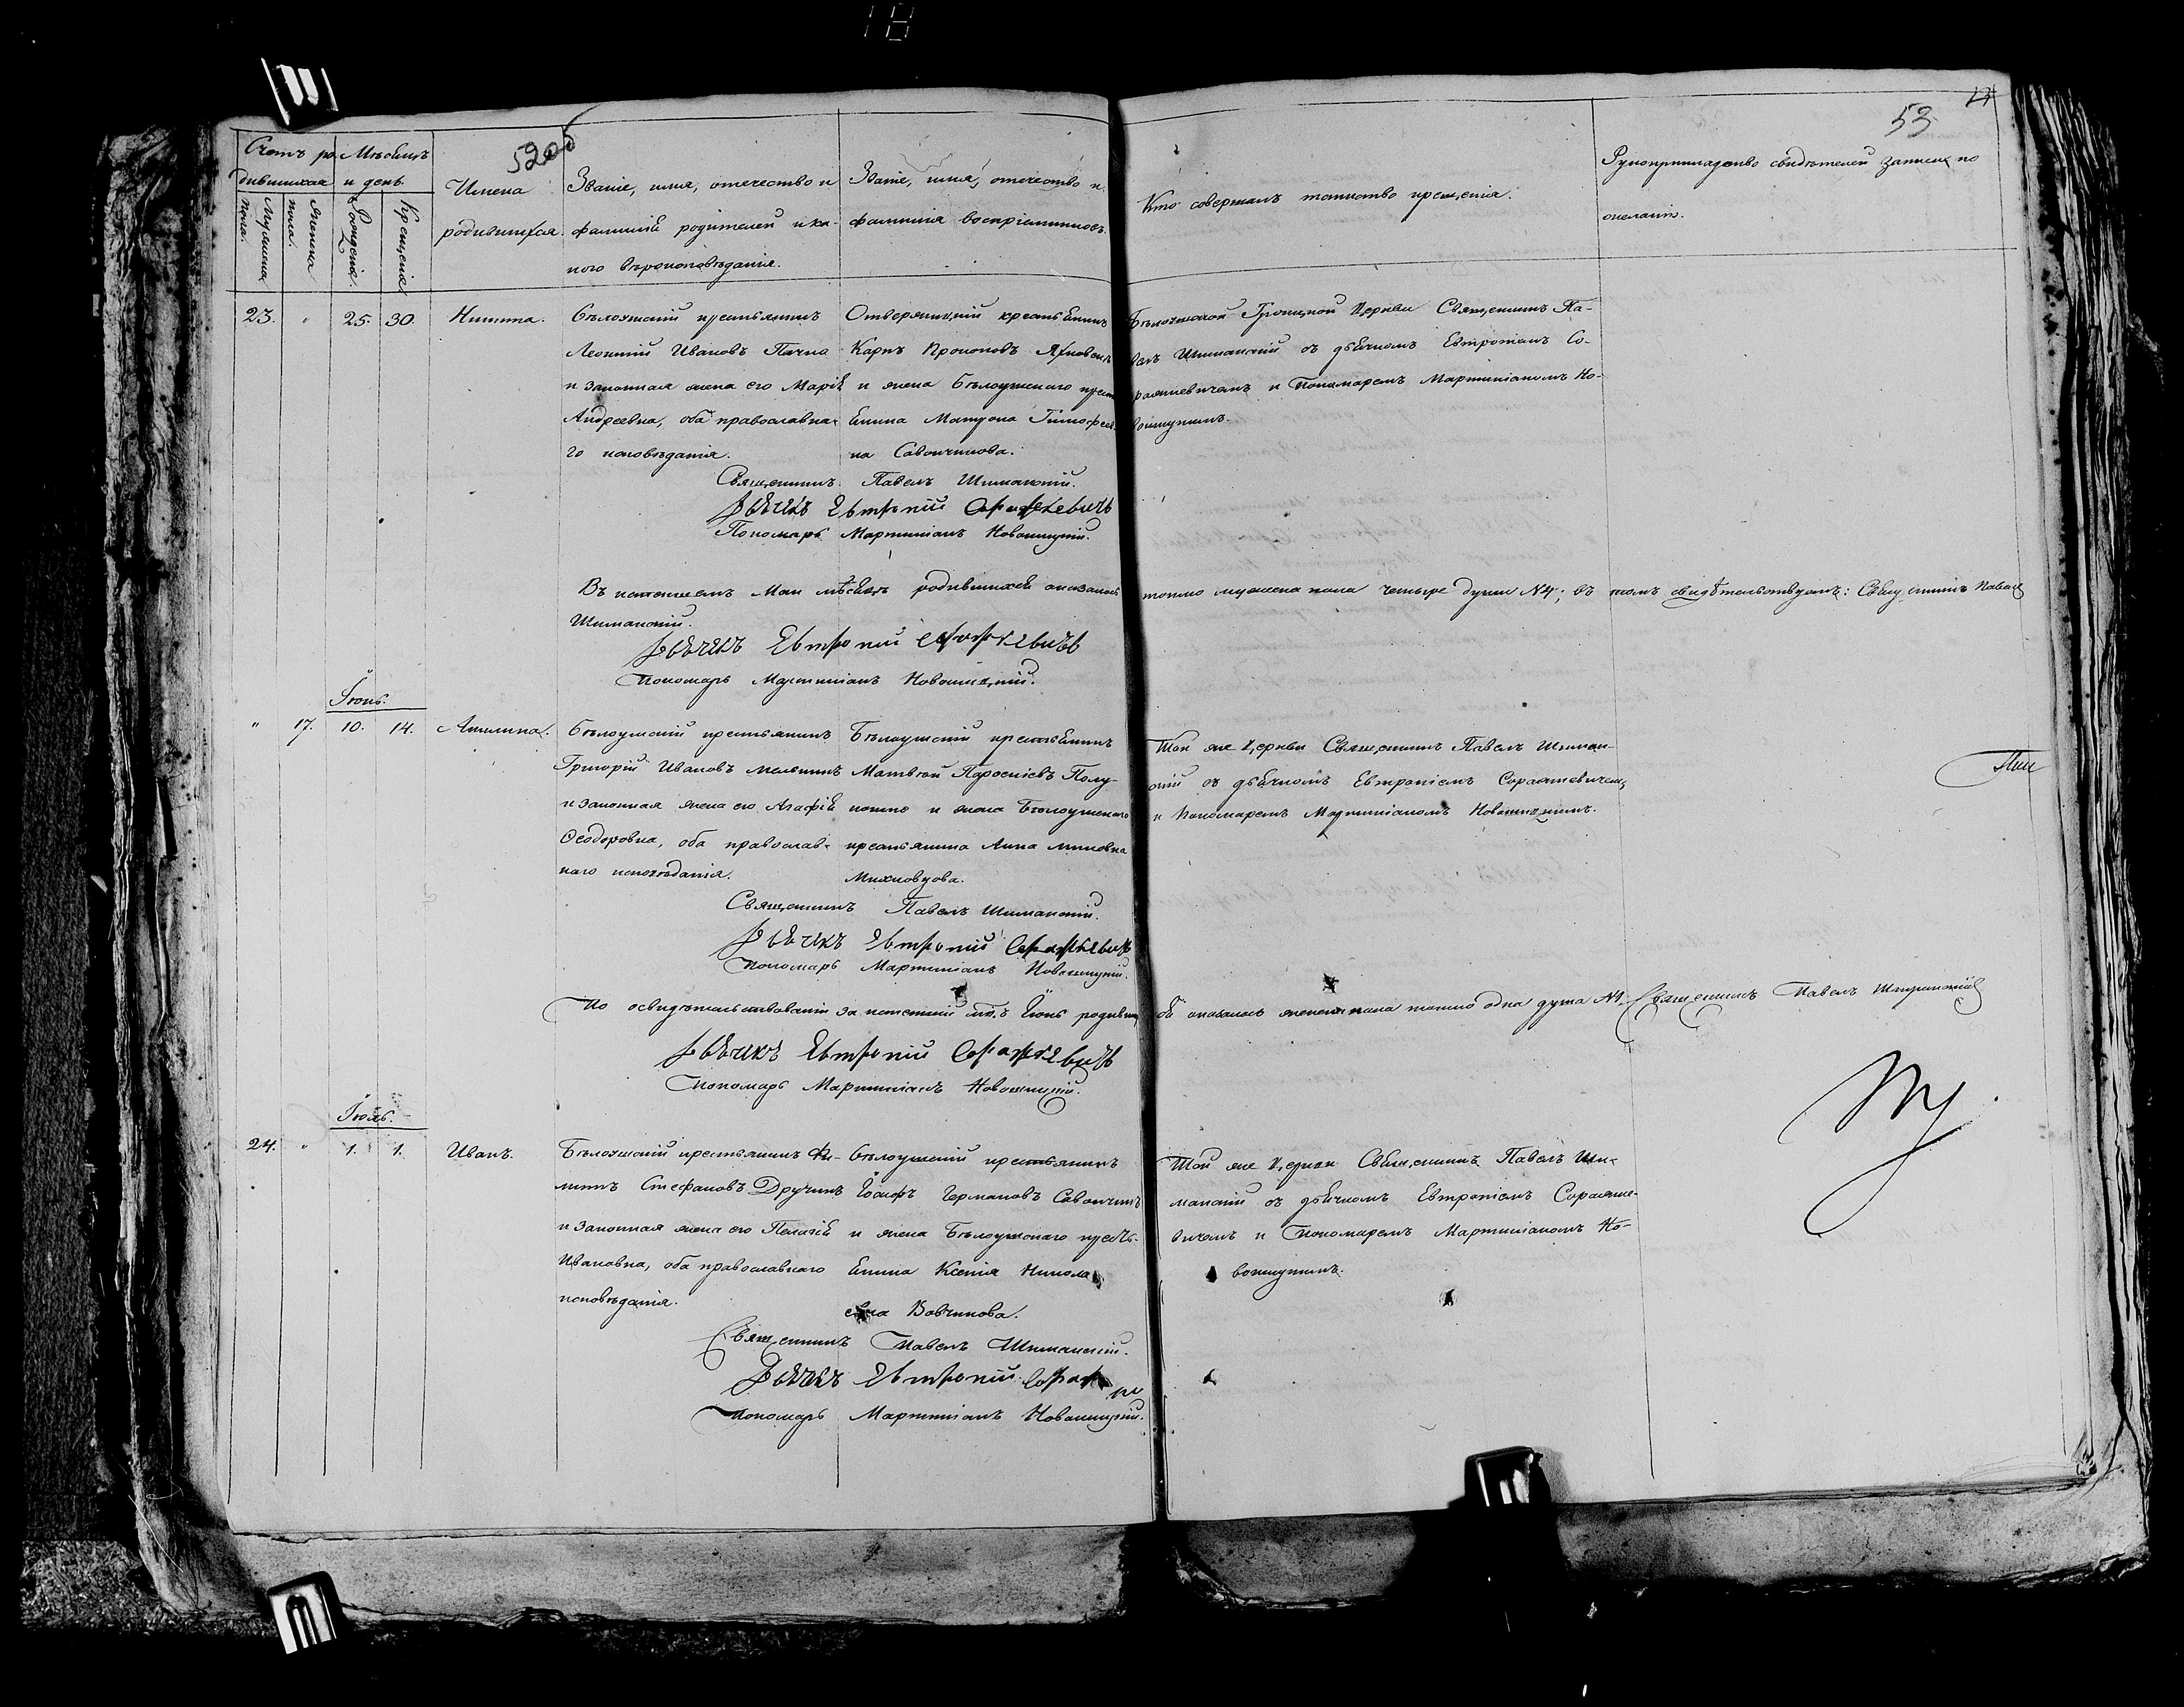 18
52об
53
Счетъ ро- Мѣсяцъ
дившихся и день.
Мужеска пола.
Женска пола.
Рожденія.
Крещенія
Имена
родившихся.
Званіе, имя, отечество и
фамилія родителей и ка-
кого вѣроисповѣданія.
Званіе, имя, отечество и
фамилія воспріемниковъ.
Кто совершалъ таинство крещенія.
Рукоприкладство свидѣтелей записи по
желанію.
23. " 25. 30. Никита.
Бѣлоушскій крестьянинъ
Леонтій Ивановъ
и законная жена его Марія
Андреевна, оба православна-
го исповѣданія.
Отвержицкій крестьянинъ
Карпъ Прокоповъ
и жена Бѣлоушскаго крест
янина Матрона Тимофее
на Савончикова.
Бѣлоушской Троицкой Церкви Священникъ Па-
велъ Шиманскій съ дьячкомъ Евтропіемъ Со-
ражкевичемъ и Пономаремъ Мартиніаномъ Но-
вошицкимъ.
Священникъ Павелъ Шиманскій.
Дьячкъ Евтропій Соражкевичъ
Пономарь Мартиніанъ Новошицкій.
Въ истекшемъ Маи мѣсяцѣ родившихся оказалось токмо мужеска пола четыре души №4; въ томъ свидѣтельствуютъ: Священникъ Павелъ
Шиманскій.
Дьячкъ Евтропій Соражкевичъ
Пономарь Мартиніанъ Новошицкій.
Іюнь.
" 17. 10. 14. Акилина.
Бѣлоушскій крестьянинъ
Григорій Ивановъ Мельникъ
и законная жена его Агафія
Ѳеодоровна, оба православ-
наго исповѣданія.
Бѣлоушскій крестьянинъ
Матвѣй
и жена Бѣлоушскаго
крестьянина Анна
Михновцова.
Той же Церкви Священникъ Павелъ Шиман-
скій съ дьячкомъ Евтропіемъ Соражкевичемъ
и Пономаремъ Мартиніаномъ Новошицкимъ.
Священникъ Павелъ Шиманскій.
Дьячкъ Евтропій Соражкевичъ
Пономарь Мартиніанъ Новошицкій.
По освидѣтельствованіи за истекшій м-цъ Іюнь родивших ся оказалось женска пола токмо одна душа №1. Священникъ Павелъ Шиманскій
Дьячкъ Евтропій Соражкевичъ
Пономарь Мартиніанъ Новошицкій.
Іюль.
24. " 1. 1. Иванъ.
Бѣлоушскій крестьянинъ Фи-
липъ Стефановъ Дручикъ
и законная жена его Пелагія
Ивановна, оба православнаго
исповѣданія.
Бѣлоушскій крестьянинъ
Іосифъ Германовъ Савончикъ
и жена Бѣлоушскаго кресть-
янина Ксенія Никола
евна Вовчикова.
Той же Церкви Священникъ Павелъ Ши-
манскій съ дьячкомъ Евтропіемъ Соражке-
вичемъ и Пономаремъ Мартиніаномъ Но-
вошицкимъ.
Священникъ Павелъ Шиманскій.
Дьячкъ Евтропій
Пономарь Мартиніанъ Новошицкій.